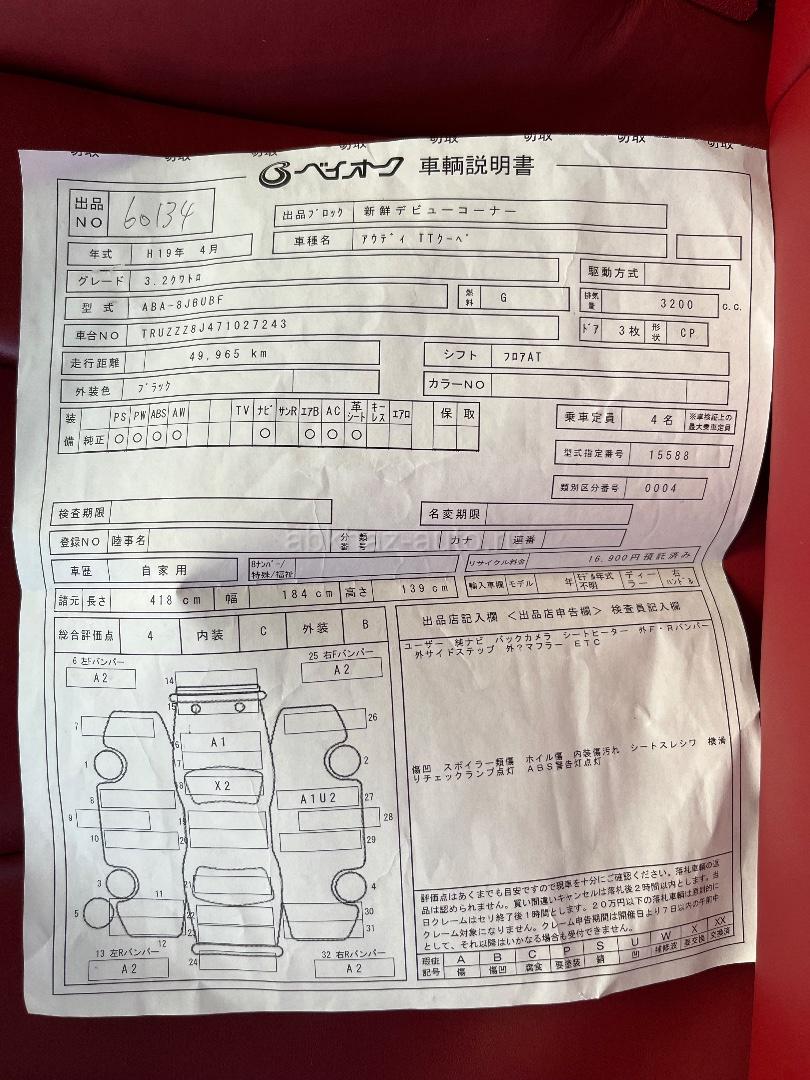 切取 切取 切取 切取 切取
ベイオーク 車輌説明書
出品NO 60134
出品ブロック 新鮮デビューコーナー
年式 H19年 4月
車種名 アウディ TTクーペ
グレード 3.2クワトロ
駆動方式
型式 ABA-8J6UBF
燃料 G
排気量 3200 c.c.
車台NO TRUZZZ8J471027243
ドア 3枚 形状 CP
走行距離 49,965 km
シフト フロアAT
外装色 ブラック
カラーNO
装備 PS PW ABS AW TV ナビ サンR エアB AC 革シート キーレス エアロ 保 取
純正 ○ ○ ○ ○ ○ ○ ○ ○
乗車定員 4名 ※車検証上の最大乗車定員
型式指定番号 15588
類別区分番号 0004
検査期限
名変期限
登録NO 陸事名 分類番号 カナ 連番
abkhaz-auto.ru
車歴 自家用
8ナンバー/特殊/福祉
リサイクル料金 16,900円預託済み
諸元 長さ 418cm 幅 184cm 高さ 139cm
輸入車欄 モデル 年 モデル年式不明 ディーラー 右ハンドル
総合評価点 4 内装 C 外装 B
出品店記入欄 <出品店申告欄> 検査員記入欄
ユーザー 純ナビ バックカメラ シートヒーター 外F・Rバンパー
外サイドステップ 外?マフラー ETC
6 左Fバンパー
A2
25 右Fバンパー
A2
14
15
7
26
16
A1
1
2
18
X2
8
A1U2
27
9
28
19
10
20
29
傷凹 スポイラー類傷 ホイル傷 内装傷汚れ シートスレシワ 横滑
りチェックランプ点灯 ABS警告灯点灯
3
11
21
4
5
22
30
23
31
12
24
13 左Rバンパー
A2
32 右Rバンパー
A2
評価点はあくまでも目安ですので現車を十分にご確認ください。落札車輌の返
品は認められません。買い間違いキャンセルは落札後2時間以内とします。当
日クレームはセリ終了後1時間とします。20万円以下の落札車輌は原則的に
クレーム対象になりません。クレーム申告期間は開催日より7日以内の午前中
として、それ以降はいかなる場合も受付できません。
瑕疵記号 A B C P S U W X XX
傷 傷凹 腐食 要塗装 錆 凹 補修波 要交換 交換済